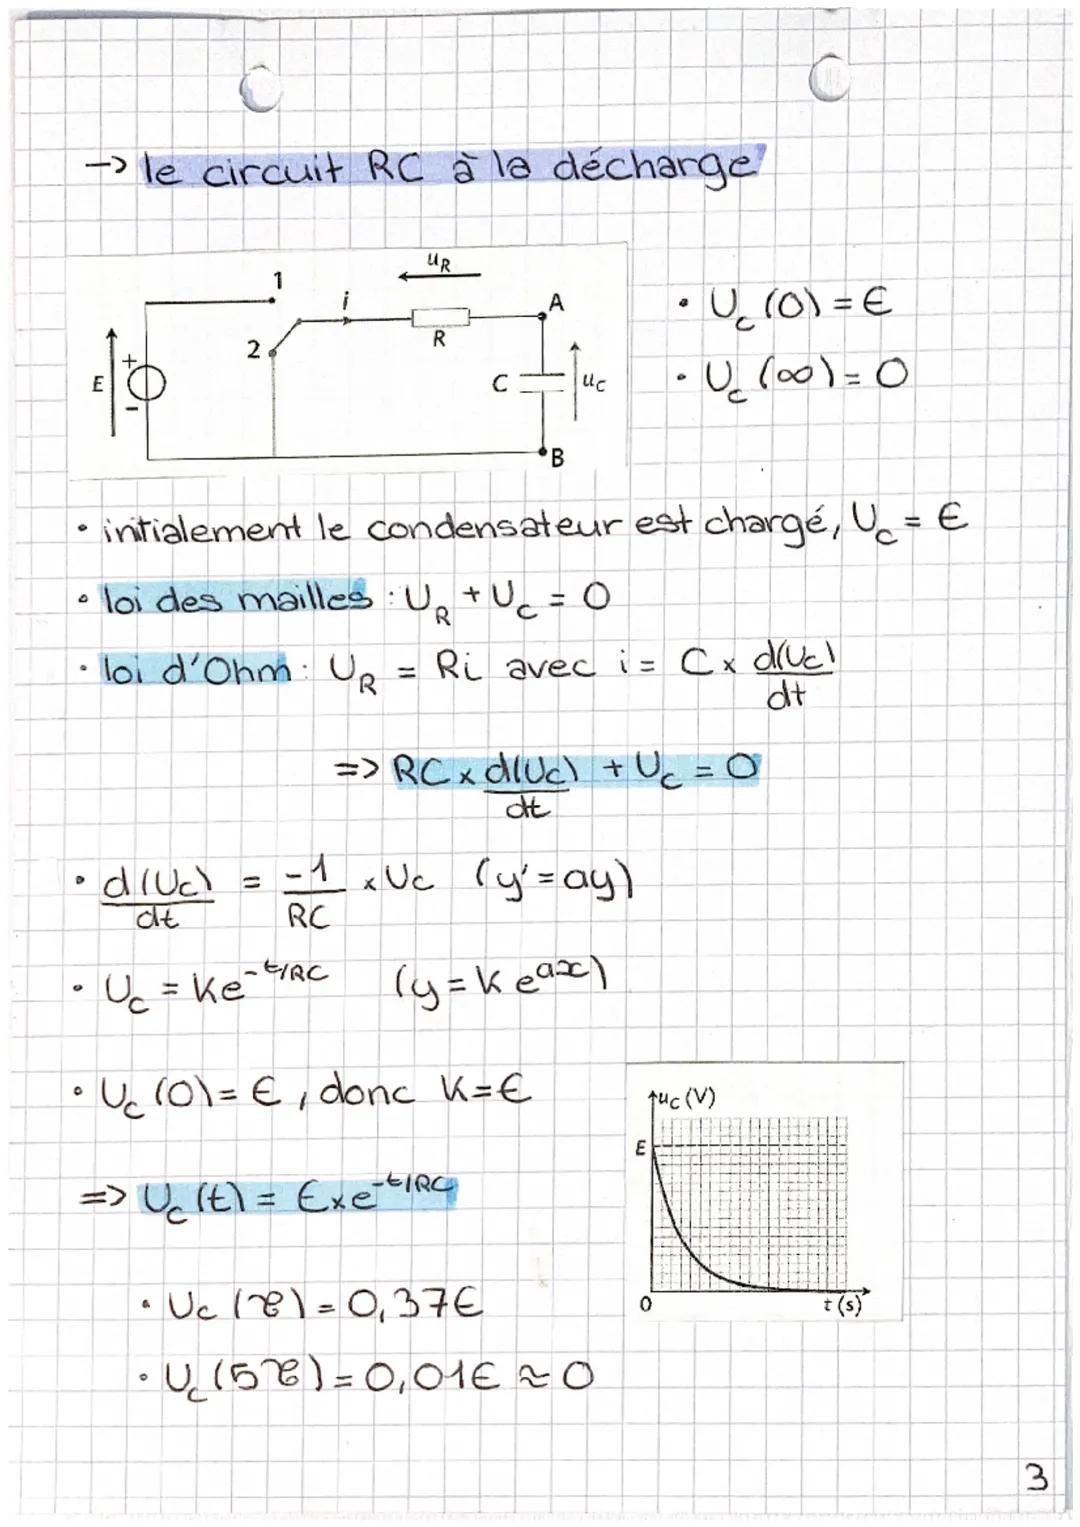 -> le circuit RC à la décharge
uR
1
i
A
2
R
E
+
-
C
uc
B
• Uc (0) = E
• Uc (∞) = 0
• initialement le condensateur est chargé, Uc = E
• loi des mailles : UR + Uc = 0
• loi d'Ohm : UR = Ri avec i = C x d(Uc)/dt
=> RC x d(Uc)/dt + Uc = 0
• d(Uc)/dt = -1/RC x Uc (y' = ay)
• Uc = Ke^-t/RC (y = K e^ax)
• Uc (0) = E, donc K = E
=> Uc (t) = E x e^-t/RC
• Uc (τ) = 0,37E
• Uc (5τ) = 0,01E ≈ 0
uc (V)
E
0
t (s)
3